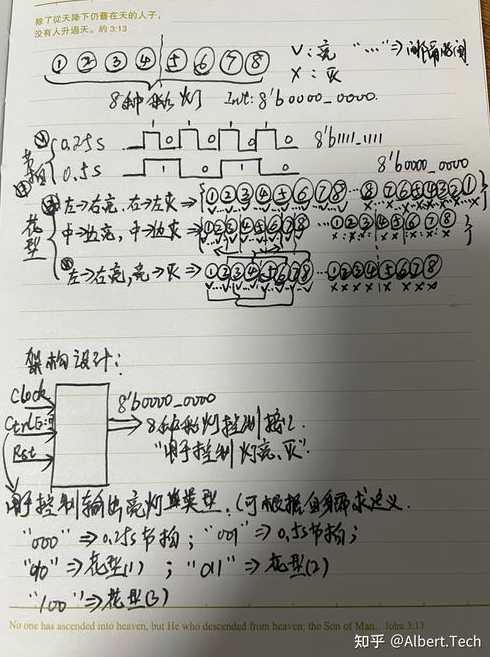 除了從天降下仍舊在天的人子，
沒有人升過天。約 3:13
① ② ③ ④ ⑤ ⑥ ⑦ ⑧
V：亮 "…"⇒间隔
X：灭
8种彩灯 Init: 8'b0000_0000.
节拍
(1) 0.25s 1 0 1 0 1 0 1 0 8'b1111_1111
(2) 0.5s 1 0 1 0 8'b0000_0000
花型
(1) 左→右亮，右→左灭 ⇒ {①②③④⑤⑥⑦⑧ … ⑧⑦⑥⑤④③②①}
(2) 中→边亮，中→边灭 ⇒ {①②③④⑤⑥⑦⑧ … ①②③④⑤⑥⑦⑧}
(3) 左→右亮，亮→灭 ⇒ ①②③④⑤⑥⑦⑧ … ①②③④⑤⑥⑦⑧
架构设计：
Clock
8'b0000_0000
8种彩灯控制接口
Rst
"用于控制灯亮、灭".
用于控制输出亮灯类型.(可根据自身需求定义.
"000"⇒0.25s节拍；"001"⇒0.5s节拍；
"010"⇒花型(1)；"011"⇒花型(2)
"100"⇒花型(3)
No one has ascended into heaven, but He who descended from heaven, the Son of Man. John 3:13
知乎 @Albert.Tech